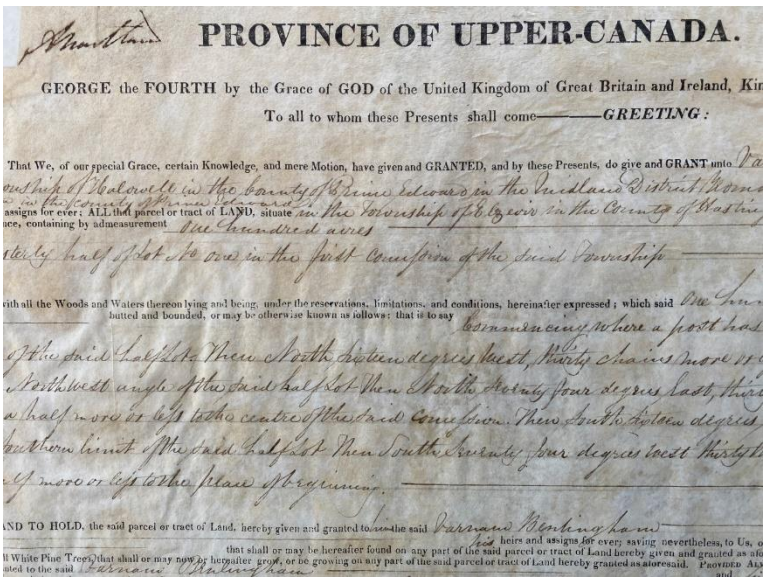 PROVINCE OF UPPER-CANADA.
GEORGE the FOURTH by the Grace of GOD of the United Kingdom of Great Britain and Ireland, Kin
To all to whom these Presents shall come——GREETING:
That We, of our special Grace, certain Knowledge, and mere Motion, have given and GRANTED, and by these Presents, do give and GRANT unto Va
ownship of Halowell in the County of Prince Edward in the Midland District
in the county of Prince Edward
assigns for ever; ALL that parcel or tract of LAND, situate in the Township of Elzevir in the County of Hasting
nce, containing by admeasurement one hundred acres
sterly half of Lot No one in the first concession of the said Township
with all the Woods and Waters thereon lying and being, under the reservations, limitations, and conditions, hereinafter expressed; which said One hun
butted and bounded, or may be otherwise known as follows; that is to say Commencing where a post has
of the said half Lot: Then North sixteen degrees West, thirty chains more or
Northwest angle of the said half Lot then North Seventy four degrees East, thir
a half more or less to the centre of the said concession. Then South sixteen degrees
Southern limit of the said half Lot Then South Seventy four degrees West thirty
lf more or less to the place of beginning.
AND TO HOLD, the said parcel or tract of Land, hereby given and granted to him the said Varnam
his heirs and assigns for ever; saving nevertheless, to Us, o
that shall or may be hereafter found on any part of the said parcel or tract of Land hereby given and granted as afo
ll White Pine Trees, that shall or may now or hereafter grow, or be growing on any part of the said parcel or tract of Land hereby granted as aforesaid. PROVIDED ALW
nted to the said Varnam